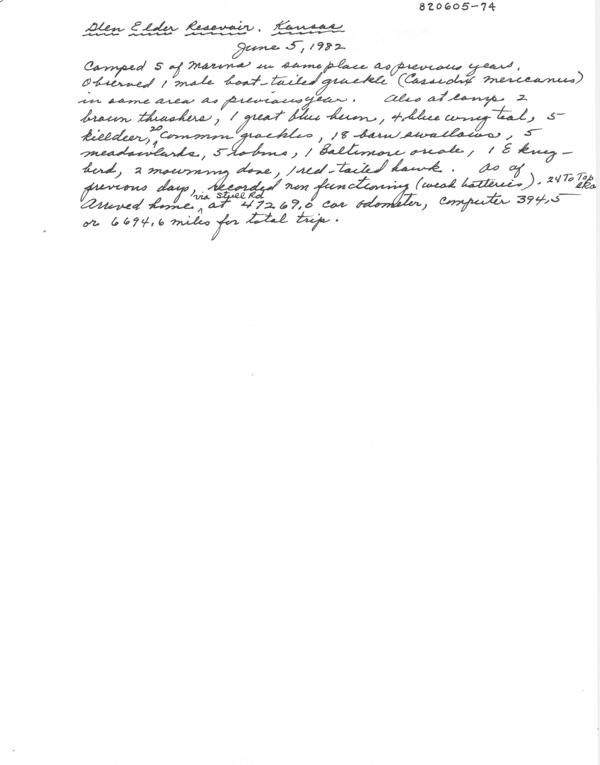 820605-74
Glen Elder Resevoir, Kansas
June 5, 1982
Camped S of Marina in same place as previous years.
Observed 1 male boat-tailed grackle (Cassidix mexicanus)
in same area as previous year. Also at camp 2
brown thrashers, 1 great blue heron, 4 blue wing teal, 5
killdeer, 20 common grackles, 18 barn swallows, 5
meadowlarks, 5 robins, 1 Baltimore oriole, 1 E king-
bird, 2 mourning dove, 1 red-tailed hawk. As of
previous day, recorded non functioning (weak batteries). 24 To Top
eka
Arrived home via Stull Rd at 47269.0 car odometer, computer 394.5
or 6694.6 miles for total trip.